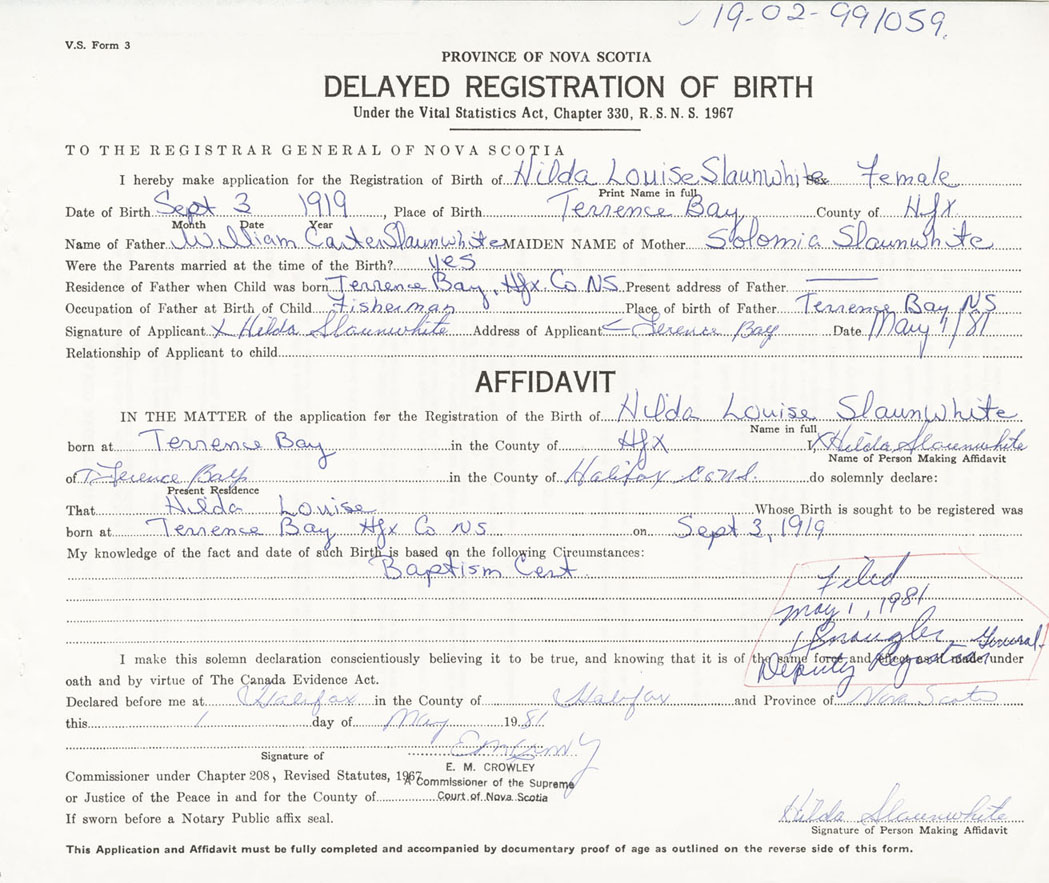 19-02-991059.
V.S. Form 3
PROVINCE OF NOVA SCOTIA
DELAYED REGISTRATION OF BIRTH
Under the Vital Statistics Act, Chapter 330, R.S.N.S. 1967
TO THE REGISTRAR GENERAL OF NOVA SCOTIA
I hereby make application for the Registration of Birth of Hilda Louise Slaunwhite Sex Female
Print Name in full
Date of Birth Sept 3 1919, Place of Birth Terrence Bay County of Hfx.
Month Date Year
Name of Father William Carter Slaunwhite MAIDEN NAME of Mother Solomia Slaunwhite
Were the Parents married at the time of the Birth? yes
Residence of Father when Child was born Terrence Bay, Hfx. Co NS Present address of Father
Occupation of Father at Birth of Child Fisherman Place of birth of Father Terrence Bay NS
Signature of Applicant x Hilda Slaunwhite Address of Applicant Terence Bay Date May 1/81
Relationship of Applicant to child
AFFIDAVIT
IN THE MATTER of the application for the Registration of the Birth of Hilda Louise Slaunwhite
Name in full
born at Terrence Bay in the County of Hfx I, x Hilda Slaunwhite
Name of Person Making Affidavit
of Terence Bay in the County of Halifax Co NS. do solemnly declare:
Present Residence
That Hilda Louise Whose Birth is sought to be registered was
born at Terrence Bay Hfx Co NS on Sept 3, 1919
My knowledge of the fact and date of such Birth is based on the following Circumstances:
Baptism Cert.
Filed
May 1, 1981
General
Deputy Registrar
I make this solemn declaration conscientiously believing it to be true, and knowing that it is of the same force and effect as if made under
oath and by virtue of The Canada Evidence Act.
Declared before me at Halifax in the County of Halifax and Province of Nova Scotia
this 1 day of May 1981
Signature of
E. M. CROWLEY
Commissioner under Chapter 208, Revised Statutes, 1967
A Commissioner of the Supreme
or Justice of the Peace in and for the County of
Court of Nova Scotia
If sworn before a Notary Public affix seal.
Hilda Slaunwhite
Signature of Person Making Affidavit
This Application and Affidavit must be fully completed and accompanied by documentary proof of age as outlined on the reverse side of this form.